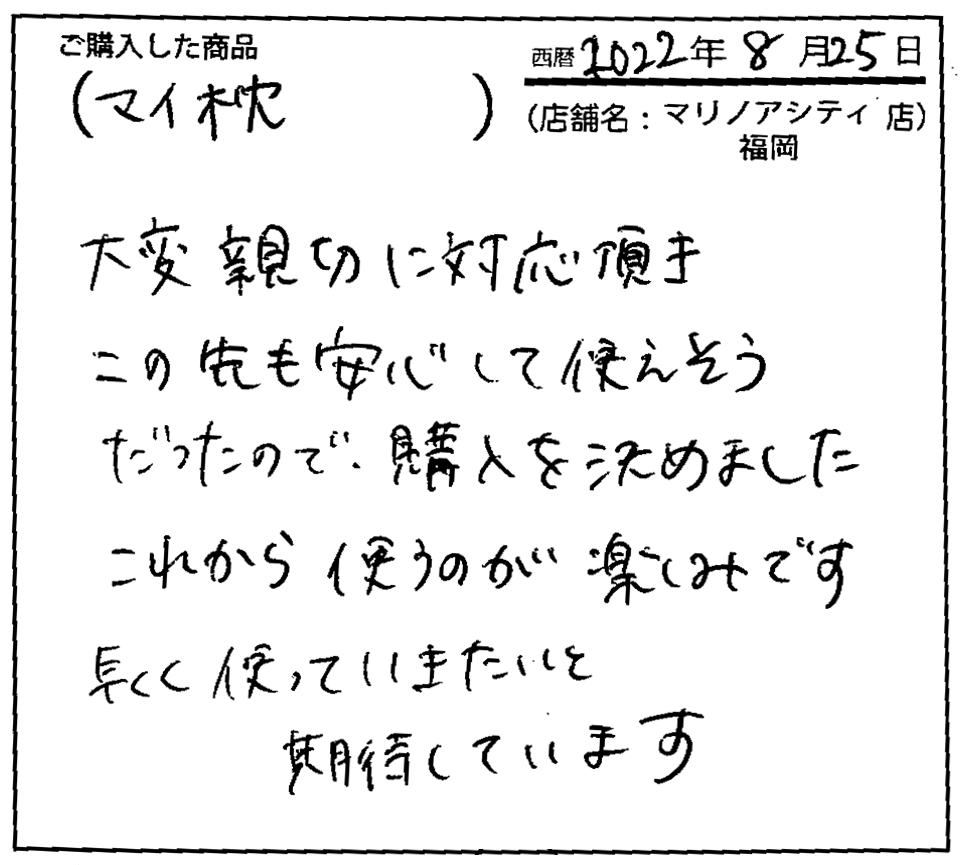 ご購入した商品
(マイ枕)
西暦2022年8月25日
(店舗名：マリノアシティ福岡 店)
大変親切に対応頂き
この先も安心して使えそう
だったので、購入を決めました
これから使うのが楽しみです
長く使っていきたいと
期待しています